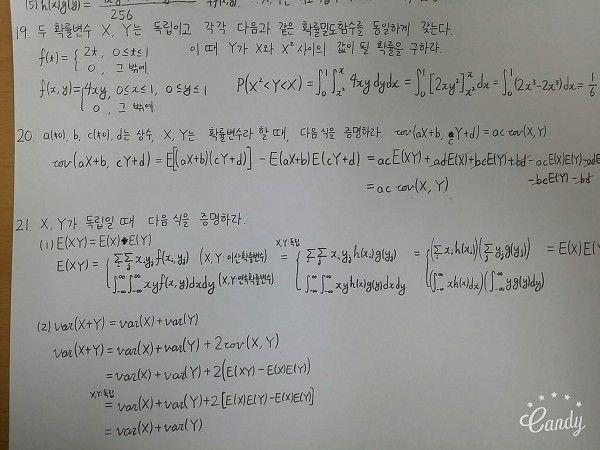 (5) h(x)g(y)=
256
19. 두 확률변수 X, Y는 독립이고 각각 다음과 같은 확률밀도함수를 동일하게 갖는다.
f(t)={2t, 0≤t≤1 이 때 Y가 X와 X²사이의 값이 될 확률을 구하라.
0, 그 밖에.
f(x,y)={4xy, 0≤x≤1, 0≤y≤1 P(X²<Y<X)=∫₀¹∫ₓ²ˣ 4xy dydx=∫₀¹[2xy²]ₓ²ˣ dx=∫₀¹(2x³-2x⁵)dx=1/6
0, 그 밖에.
20. a(≠0), b, c(≠0), d는 상수, X, Y는 확률변수라 할 때, 다음 식을 증명하라. cov(aX+b, cY+d)=ac cov(X,Y)
cov(aX+b, cY+d)=E[(aX+b)(cY+d)]-E(aX+b)E(cY+d)=acE(XY)+adE(X)+bcE(Y)+bd-acE(X)E(Y)-adE
-bcE(Y)-bd
=ac cov(X, Y)
21. X, Y가 독립일 때 다음 식을 증명하라.
(1) E(XY)=E(X)E(Y)
E(XY)={∑∑xᵢyⱼf(xᵢ,yⱼ) (X,Y:이산확률변수) X,Y:독립 = {∑∑xᵢyⱼh(xᵢ)g(yⱼ) = {(∑xᵢh(xᵢ))(∑yⱼg(yⱼ)) = E(X)E(Y
∫∫xyf(x,y)dxdy (X,Y:연속확률변수) ∫∫xyh(x)g(y)dxdy (∫xh(x)dx)(∫yg(y)dy)
(2) var(X+Y)=var(X)+var(Y)
var(X+Y)=var(X)+var(Y)+2cov(X,Y)
=var(X)+var(Y)+2(E(XY)-E(X)E(Y))
X,Y:독립
=var(X)+var(Y)+2[E(X)E(Y)-E(X)E(Y)]
=var(X)+var(Y)
Candy